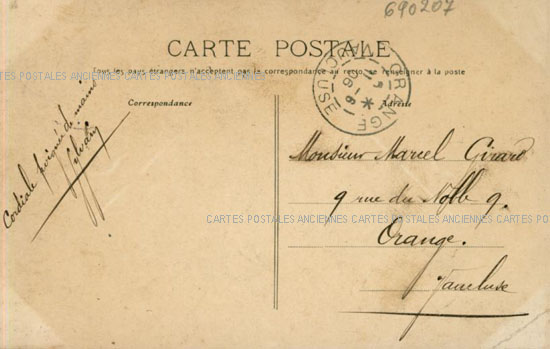 690207
CARTE POSTALE
Tous les pays étrangers n'acceptent pas la correspondance au recto, se renseigner à la poste
CARTES POSTALES ANCIENNES CARTES POSTALES ANCIENNES CARTES POSTALES ANCIENNES
Correspondance
Adresse
ORANGE
VAUCLUSE
Cordiale poignée de main
Monsieur Marcel Girard
9 rue du Noble 9.
CARTES POSTALES ANCIENNES CARTES POSTALES ANCIENNES
Orange.
Vaucluse